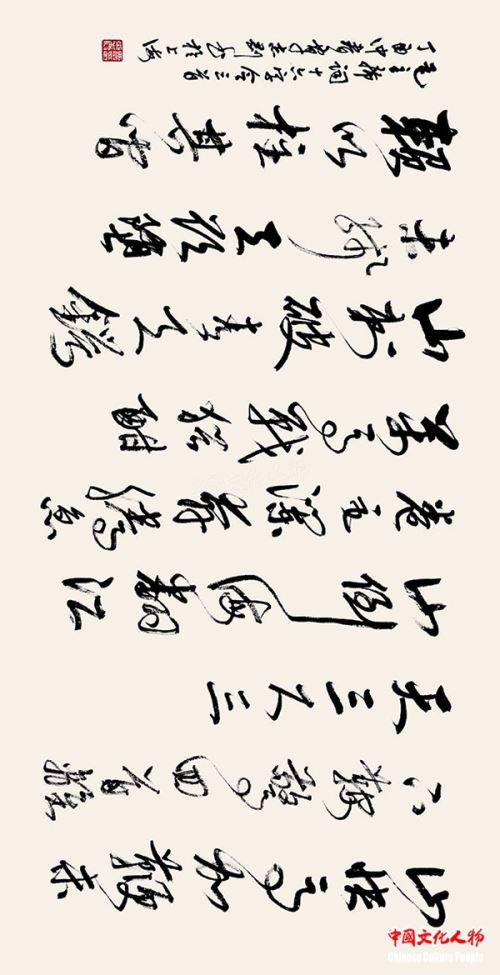 山快馬加鞭未
下鞍驚回首離
天三尺三
山倒海翻江
卷巨瀾奔騰急
萬馬戰猶酣
山刺破青天鍔
未殘天欲墮
賴以拄其間
毛主席詞十六字令三首
丁酉仲春 於上海
中國文化人物
Chinese Culture People